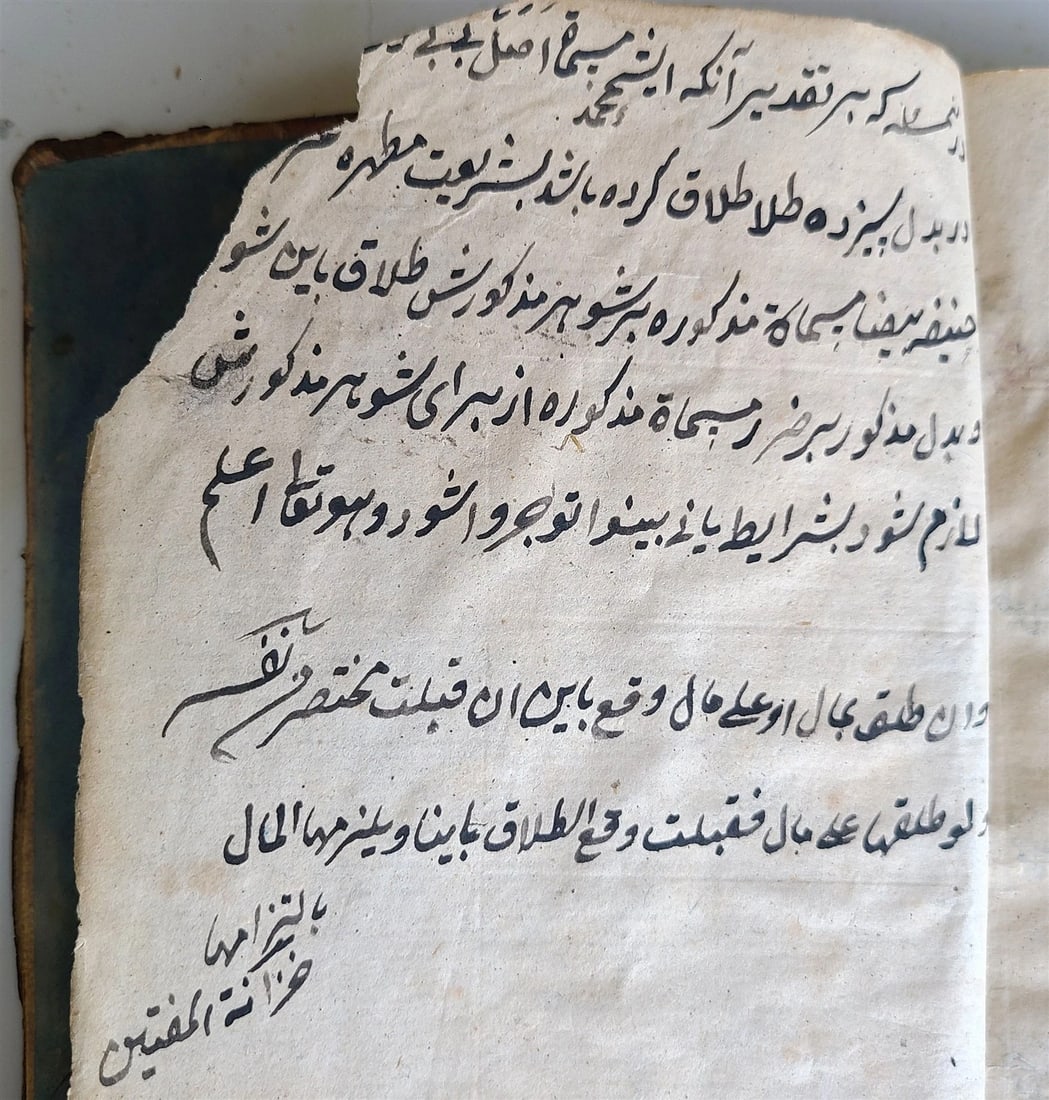 که بر تقدیر آنکه ایشمحمد مسماة
در بدل سیزده طلا طلاق کرده باشد بشریعت مطهره
حنیفه بیضا مسماة مذکوره بر شوهر مذکورش طلاق باین شو
و بدل مذکور بر مسماة مذکوره از برای شوهر مذکورش
لازم شود بشرایط یانی بینوا توجروا شود وهو تعا اعلم
وان طلق بمال او علی مال وقع باین ان قبلت مختصر
ولو طلقها علی مال فقبلت وقع الطلاق باینا ویلزمها المال
بالتزامها
خزانة المفتین